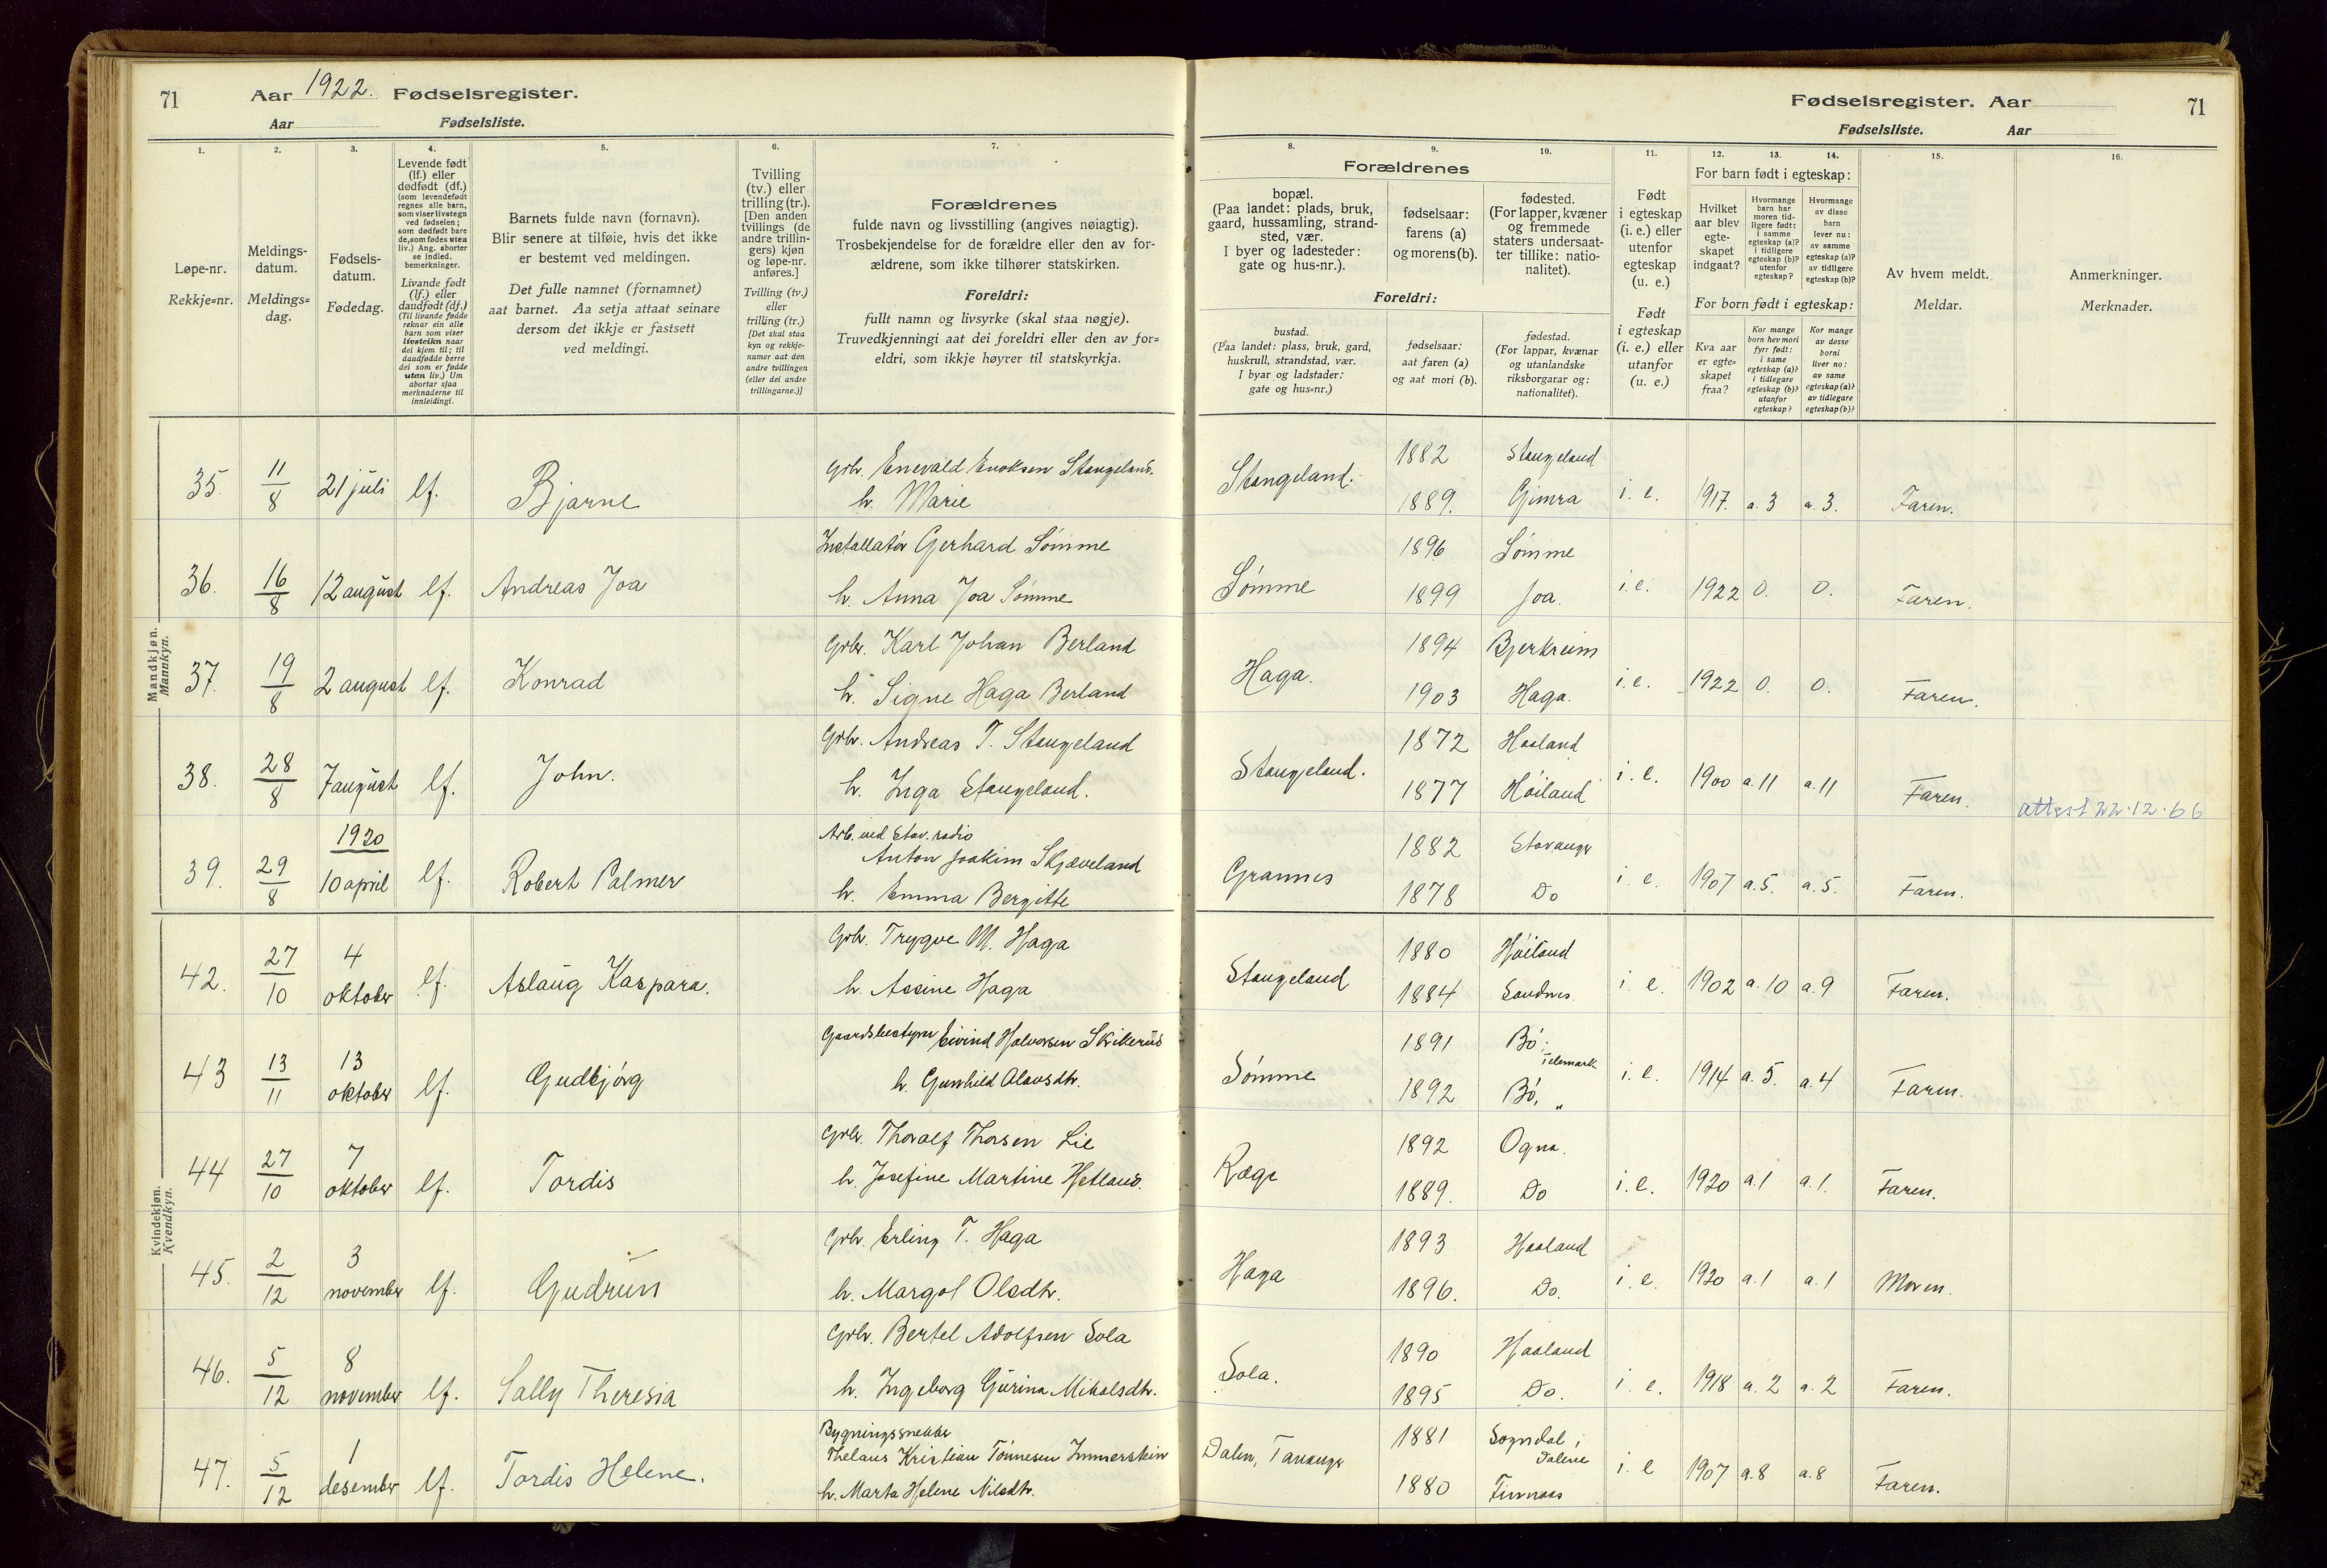 71
Aar 1922. Fødselsregister.
Aar Fødselsliste.
1.
2.
3.
4.
5.
6.
7.
Løpe-nr.
Rekkje=nr.
Meldings-
datum.
Meldings=
dag.
Fødsels-
datum.
Fødedag.
Levende født
(lf.) eller
dødfødt (df.)
(som levendefødt
regnes alle barn,
som viser livstegn
ved fødselen;
som dødfødt bare
de, som fødes uten
liv.) Ang. aborter
se indled.
bemerkninger.
Livande født
(lf.) eller
daudfødt (df.)
(Til livande fødde
reknar ein alle
barn som viser
livsteikn naar
dei kjem til; til
daudfødde berre
dei som er fødde
utan liv.) Um
abortar sjaa
merknaderne til
innleidingi.
Barnets fulde navn (fornavn).
Blir senere at tilføie, hvis det ikke
er bestemt ved meldingen.
Det fulle namnet (fornamnet)
aat barnet. Aa setja attaat seinare
dersom det ikkje er fastsett
ved meldingi.
Tvilling
(tv.) eller
trilling (tr.).
[Den anden
tvillings (de
andre trillin-
gers) kjøn
og løpe-nr.
anføres.]
Tvilling (tv.)
eller
trilling (tr.)
[Det skal staa
kyn og rekkje-
numer aat den
andre tvillingen
(eller dei andre
trillingarne.)]
Forældrenes
fulde navn og livsstilling (angives nøiagtig).
Trosbekjendelse for de forældre eller den av for-
ældrene, som ikke tilhører statskirken.
Foreldri:
fullt namn og livsyrke (skal staa nøgje).
Truvedkjenningi aat dei foreldri eller den av for=
eldri, som ikkje høyrer til statskyrkja.
Fødselsregister. Aar
71
Fødselsliste. Aar
8.
9.
10.
11.
12.
13.
14.
15.
16.
Forældrenes
bopæl.
(Paa landet: plads, bruk,
gaard, hussamling, strand-
sted, vær.
I byer og ladesteder:
gate og hus-nr.).
fødselsaar:
farens (a)
og morens (b).
fødested.
(For lapper, kvæner
og fremmede
staters undersaat-
ter tillike: natio-
nalitet).
Foreldri:
bustad.
(Paa landet: plass, bruk, gard,
huskrull, strandstad, vær.
I byar og ladstader:
gate og hus=nr.)
fødselsaar:
aat faren (a)
og aat mori (b).
fødestad.
(For lappar, kvænar
og utanlandske
riksborgarar og:
nationalitet).
Født
i egteskap
(i. e.) eller
utenfor
egteskap
(u. e.)
Født
i egteskap
(i. e.) eller
utanfor
(u. e.)
For barn født i egteskap:
Hvilket
aar blev
egte-
skapet
indgaat?
Hvormange
barn har
moren tid-
ligere født:
i samme
egteskap (a)?
i tidligere
egteskap (b)?
utenfor
egteskap?
Hvormange
av disse
barn
lever nu:
av samme
egteskap (a)?
av tidligere
egteskap (b)?
For born født i egteskap:
Kva aar
er egte=
skapet
fraa?
Kor mange
born hev mori
fyrr født:
i same
egteskap (a)?
i tidlegare
egteskap (b)?
utanfor
egteskap?
Kor mange
av desse
borni
liver no:
av same
egteskap (a)?
av tidlegare
egteskap (b)?
Av hvem meldt.
Meldar.
Anmerkninger.
Merknader.
Mandkjøn.
Mannkyn.
35. 11/8 21 juli lf. Bjarne Grbr. Enevald Enoksen Stangeland. h. Marie Stangeland. 1882 Stangeland 1889. Gimra i. e. 1917. a. 3 a. 3. Faren.
36. 16/8 12 august lf. Andreas Joa Installatør Gerhard Sømme h. Anna Joa Sømme Sømme 1896 Sømme 1899 Joa. i. e. 1922 0. 0. Faren.
37. 19/8 2 august lf. Konrad Grbr. Karl Johan Berland h. Signe Haga Berland Haga. 1894 Bjerkreim 1903 Haga. i. e. 1922 0. 0. Faren.
38. 28/8 7 august lf. John. Grbr. Andreas T. Stangeland h. Inga Stangeland. Stangeland. 1872 Haaland 1877 Høiland i. e. 1900 a. 11 a. 11 Faren. attest 22.12.66
39. 29/8 1920 10 april lf. Robert Palmer Arb. ved Stav. radio Anton Joakim Skjæveland h. Emma Bergitte Grannes 1882 Stavanger 1878 Do i. e. 1907 a. 5. a. 5. Faren.
Kvindekjøn.
Kvendkyn.
42. 27/10 4 oktober lf. Aslaug Kaspara. Grbr. Trygve M. Haga h. Assine Haga Stangeland 1880 Høiland 1884 Sandnes i. e. 1902 a. 10 a. 9 Faren.
43 13/11 13 oktober lf. Gudbjørg Gaardsbestyrer Eivind Halvorsen Skikerud h. Gunhild Olavsdtr. Sømme 1891 Bø, Telemark 1892 Bø, „ i. e. 1914 a. 5. a. 4 Faren.
44 27/10 7 oktober lf. Tordis Grbr. Thoralf Thorsen Lie h. Josefine Martine Hetland. Ræge 1892 Ogna. 1889. Do i. e. 1920 a. 1 a. 1. Faren.
45. 2/12 3 november lf. Gudrun Grbr. Erling T. Haga h. Margot Olsdtr. Haga 1893 Haaland 1896. Do. i. e. 1920 a. 1 a. 1 Moren.
46. 5/12 8 november lf. Sally Theresia Grbr. Bertel Adolfsen Sola h. Ingeborg Gurina Mikalsdtr. Sola. 1890 Haaland 1895 Do. i. e. 1918 a. 2 a. 2 Faren.
47. 5/12 1 desember lf. Tordis Helene. Bygningssnekker Thelaus Kristian Tønnesen Immerstein h. Marta Helene Nilsdtr. Dalen, Tananger 1881 Sogndal i Dalene 1880 Finnaas i. e 1907 a. 8 a. 8 Faren.